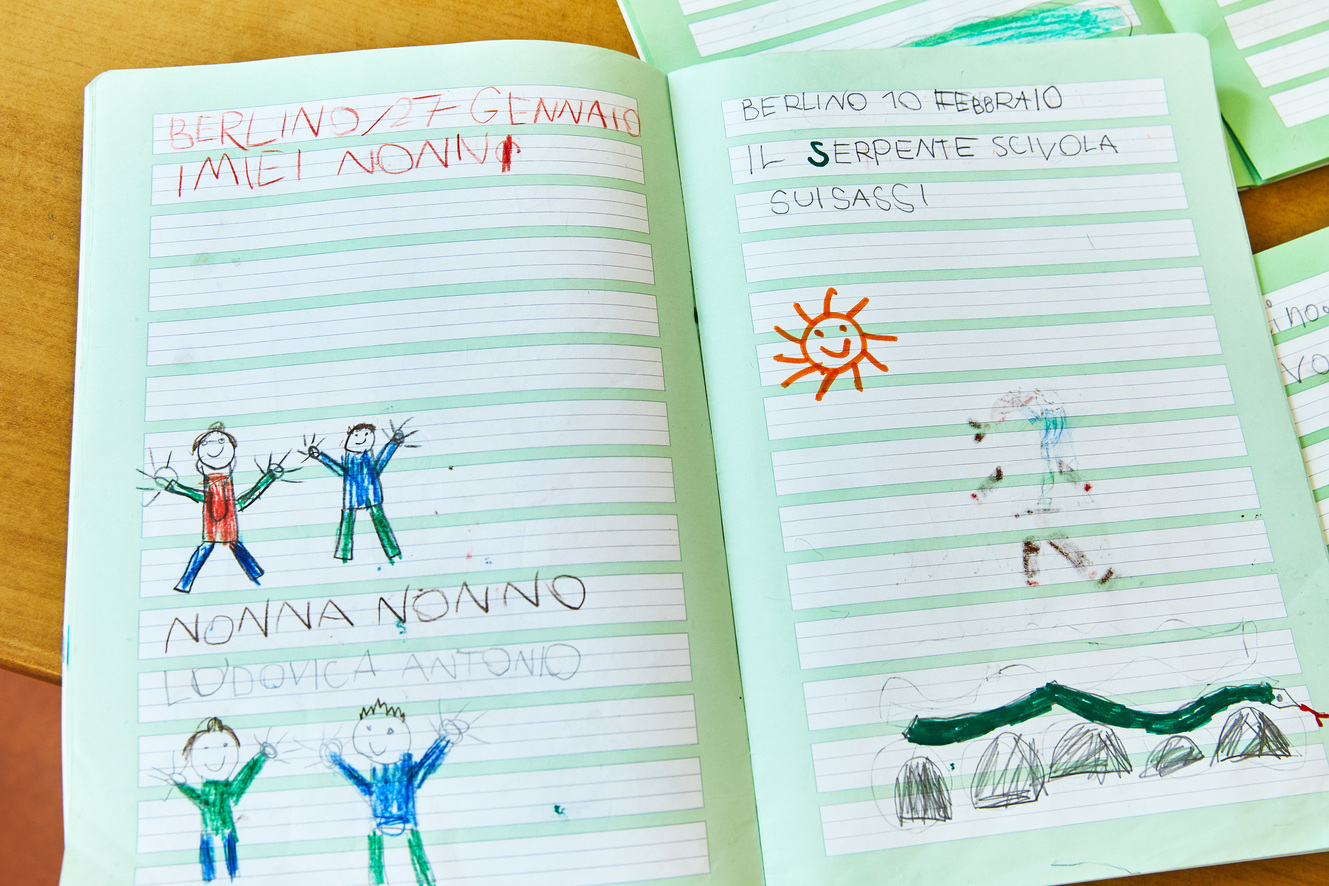 BERLINO/27 GENNAIO
I MIEI NONNI
NONNA NONNO
LUDOVICA ANTONIO
BERLINO 10 FEBBRAIO
IL SERPENTE SCIVOLA
SUI SASSI